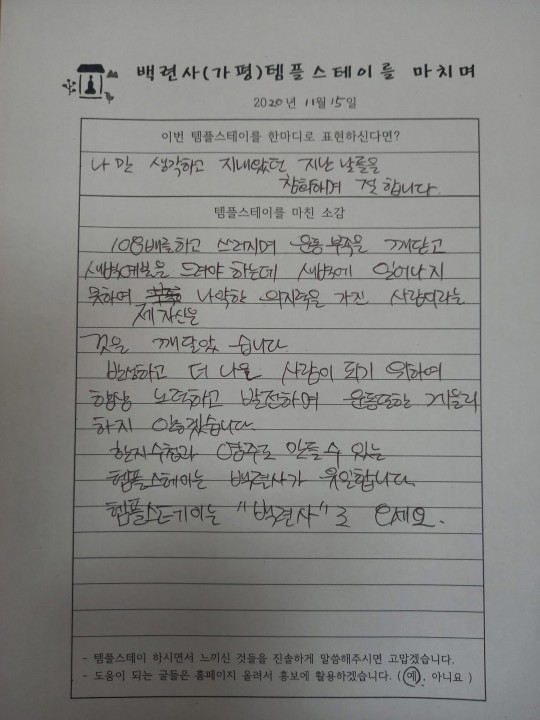 백련사(가평)템플스테이를 마치며
2020년 11월 15일
이번 템플스테이를 한마디로 표현하신다면?
나만 생각하고 지내왔던 지난 날들을
참회하며 절 합니다.
템플스테이를 마친 소감
108배를하고 쓰러지며 운동부족을 깨닫고
새벽예불을 드려야 하는데 새벽에 일어나지
못하여 나약한 의지력을 가진 사람이라는
제 자신을
것을 깨달았 습니다.
반성하고 더 나은 사람이 되기 위하여
항상 노력하고 발전하며 운동또한 게을리
하지 않겠습니다.
한지수첩과 염주도 만들 수 있는
템플스테이는 백련사가 유일합니다.
템플스테이는 "백련사"로 오세요.
- 템플스테이 하시면서 느끼신 것들을 진솔하게 말씀해주시면 고맙겠습니다.
- 도움이 되는 글들은 홈페이지 올려서 홍보에 활용하겠습니다. (예, 아니요)